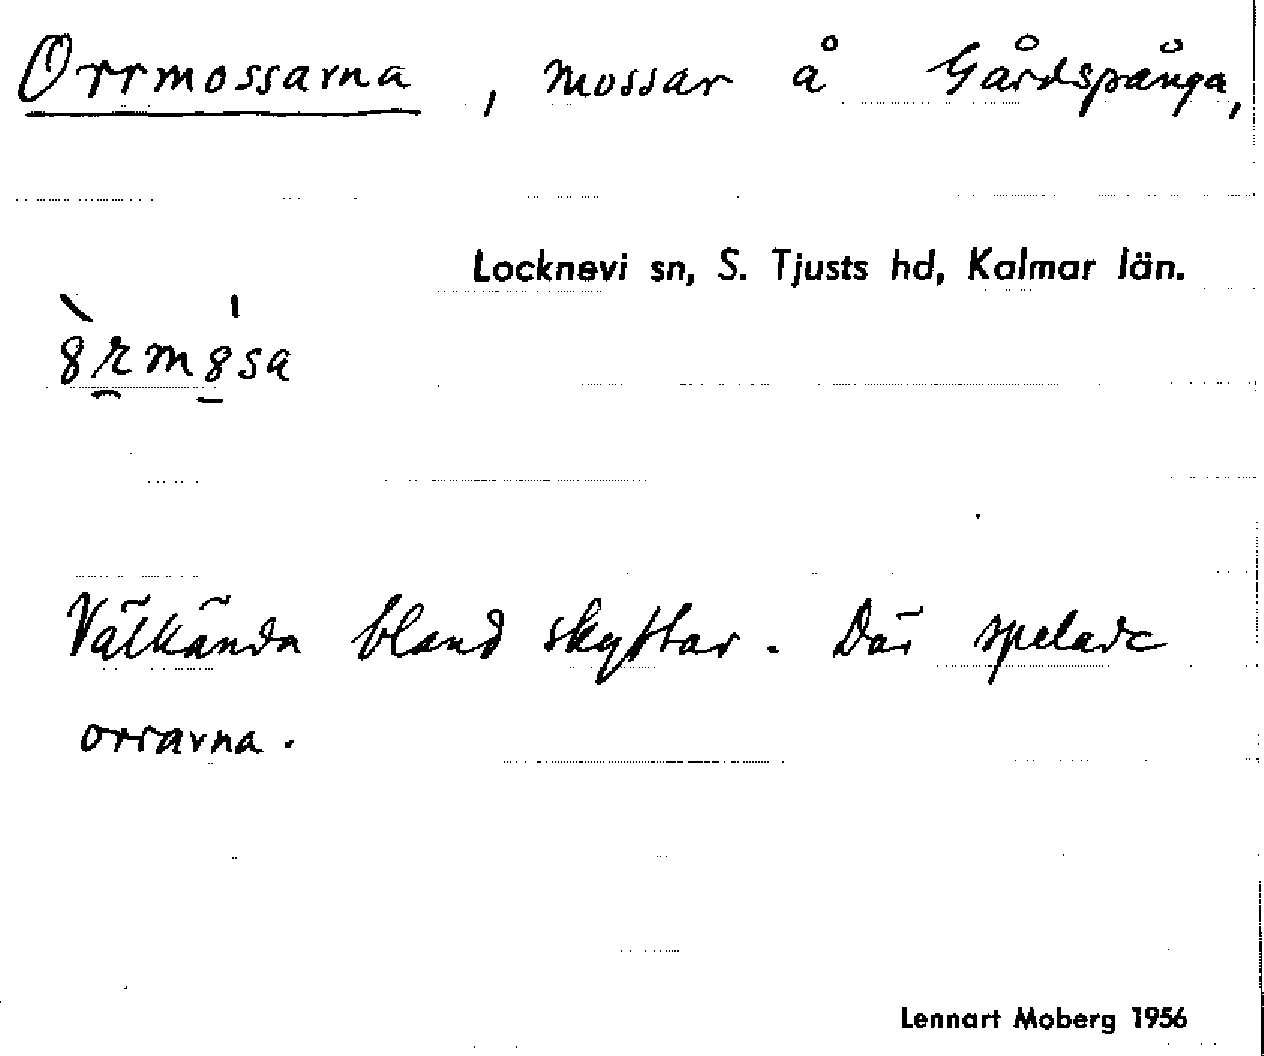 Orrmossarna, mossar å Gårdspånga,
Locknevi sn, S. Tjusts hd, Kalmar län.
Välkända bland skyttar. Där spelade
orrarna.
Lennart Moberg 1956